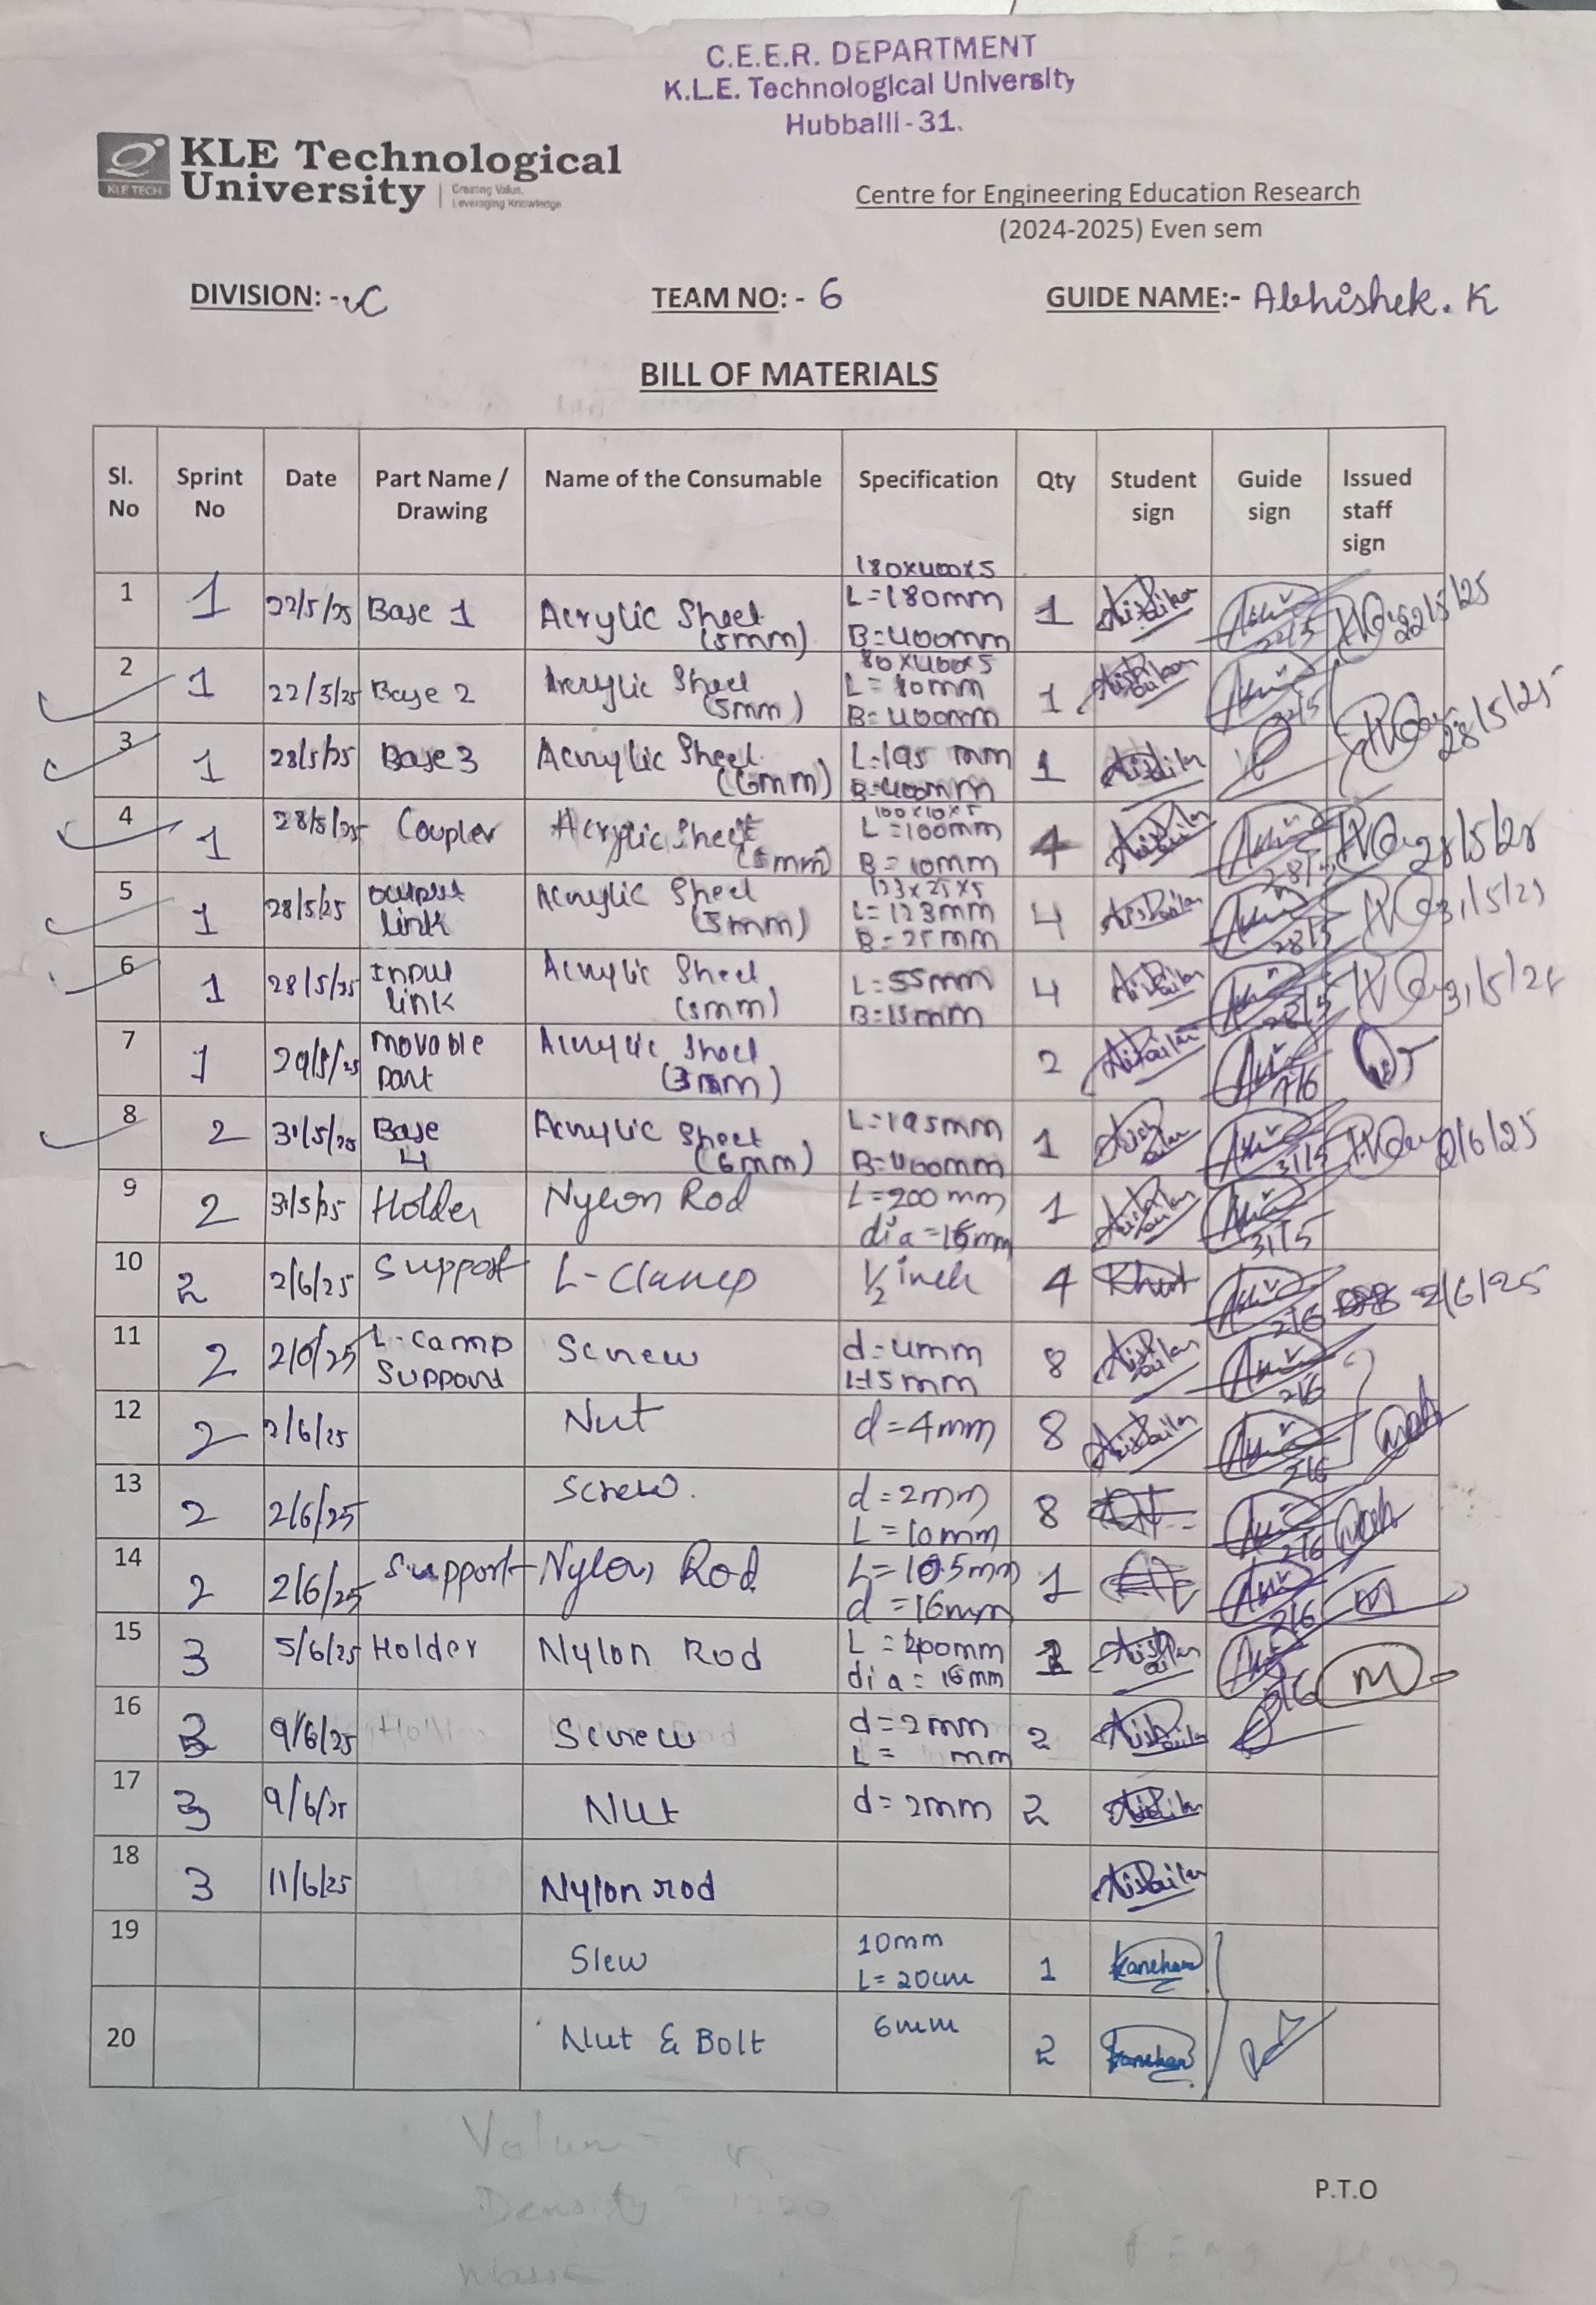 C.E.E.R. DEPARTMENT
K.L.E. Technological University
Hubballi-31.
KLE TECH
KLE Technological
University
Creating Value,
Leveraging Knowledge
Centre for Engineering Education Research
(2024-2025) Even sem
DIVISION: - C TEAM NO: - 6 GUIDE NAME:- Abhishek. K
BILL OF MATERIALS
Sl. No Sprint No Date Part Name / Drawing Name of the Consumable Specification Qty Student sign Guide sign Issued staff sign
1 1 22/5/25 Base 1 Acrylic Sheet (5mm) 180x400x5 L=180mm B=400mm 1 22/5 22/5/25
2 1 22/5/25 Base 2 Acrylic Sheet (5mm) 80x400x5 L=80mm B=400mm 1 22/5
3 1 28/5/25 Base 3 Acrylic Sheet (6mm) L=195 mm B=400mm 1 28/5/25
4 1 28/5/25 Coupler Acrylic Sheet (5mm) 100x10x5 L=100mm B=10mm 4 28/5 28/5/25
5 1 28/5/25 Output link Acrylic Sheet (5mm) 123x25x5 L=123mm B=25mm 4 28/5 31/5/25
6 1 28/5/25 Input link Acrylic Sheet (5mm) L=55mm B=15mm 4 28/5 31/5/25
7 1 29/5/25 movable part Acrylic Sheet (3mm) 2 1/6
8 2 31/5/25 Base 4 Acrylic Sheet (6mm) L=195mm B=400mm 1 31/5 2/6/25
9 2 31/5/25 Holder Nylon Rod L=200mm dia=16mm 1 31/5
10 2 2/6/25 Support L-Clamp 1/2 inch 4 2/6 2/6/25
11 2 2/6/25 L-camp support Screw d=4mm l=15mm 8 2/6
12 2 2/6/25 Nut d=4mm 8 2/6
13 2 2/6/25 Screw. d=2mm L=10mm 8 2/6
14 2 2/6/25 Support Nylon Rod L=10.5mm d=16mm 1 2/6 M
15 3 5/6/25 Holder Nylon Rod L=200mm dia=16mm M
16 3 9/6/25 Screw d=2mm L= mm 2
17 3 9/6/25 Nut d=2mm 2
18 3 11/6/25 Nylon rod
19 Slew 10mm L=20cm 1 Kanchan
20 Nut & Bolt 6mm 2 Kanchan
Volum
Density = 1220
Mass
P.T.O